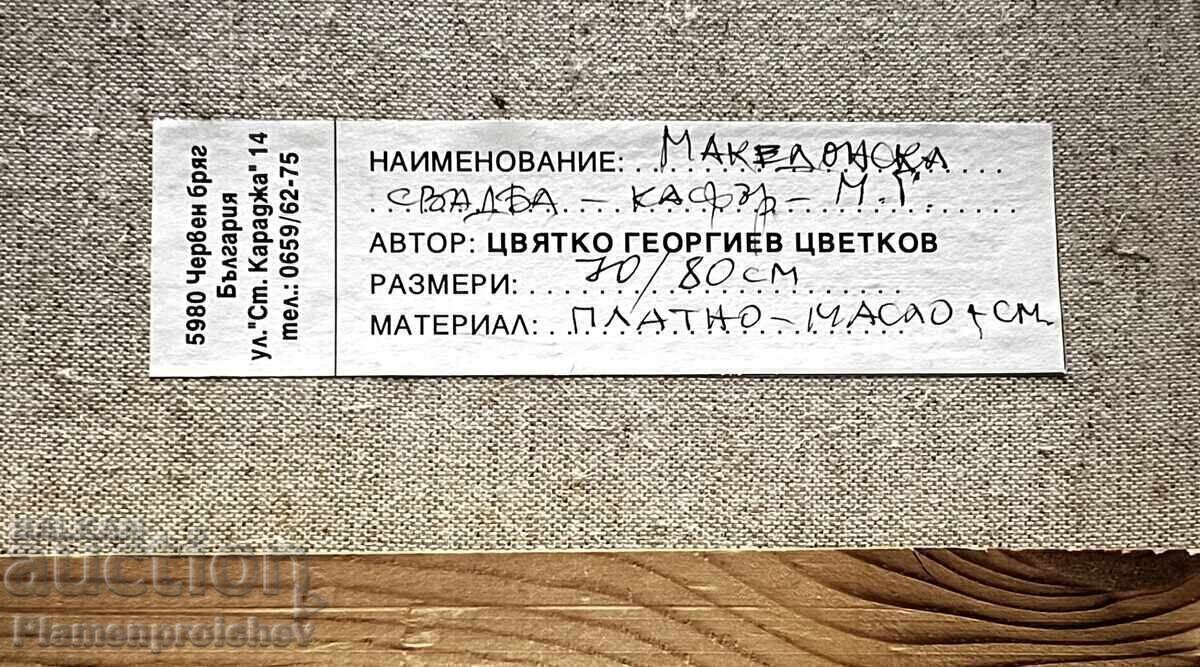 5980 Червен бряг
България
ул."Ст. Караджа" 14
тел.: 0659/62-75
НАИМЕНОВАНИЕ: МАКЕДОНСКА
СВАДБА - КАФЪР - М.Г.
АВТОР: ЦВЯТКО ГЕОРГИЕВ ЦВЕТКОВ
РАЗМЕРИ: 70/80 см
МАТЕРИАЛ: ПЛАТНО - МАСЛО, см.
BALKAN
auction
Plamenproichev